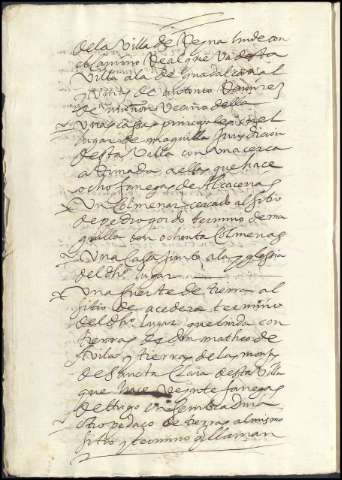 de la Villa de Serna linde con
el camino Real que va desta
Villa a la de Guadalcanal
de Antonio Ramires
de vecino della
Unas casas principales en el
lugar de maguilla Jurisdicion
desta Villa con Una cerca
a Rimada a ellas que hace
ocho fanegas de
Un Colmenar cercado al sitio
de pedro gordo termino de ma
guilla con ochenta Colmenas
Una Casa junto a la yglesia
del dho lugar
Una suerte de tierra al
sitio de acedera termino
del dho lugar que linda con
tierras de don matheo de
Avila y tierras de las monjas
de Sancta Clara desta Villa
que hace Veinte fanegas
de trigo en sembradura
otro pedaço de tierra al mismo
sitio y termino q llaman